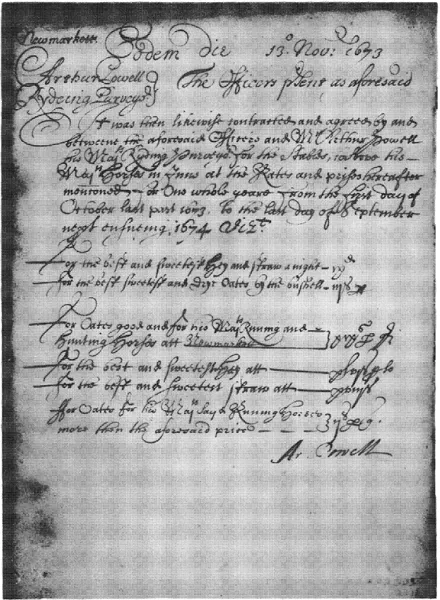 Newmarkett
Eodem die 13º Nov: 1673
Arthur Powell
Rydeing Purveyor
The Officers present as aforesaid
It was then likewise contracted and agreed by and
betweene the aforesaid Officers and Mr Arthur Powell
his Majts Ryding Purveyor for the Stables, to serve his
Majts Horses in at the Rates and prises hereafter
mentioned for One whole yeare from the first day of
October last past 1673. to the last day of September
next ensueing 1674 Vizt
For the best and sweetest Hey and straw a night
For the best sweetest and drye Oates by the bushell
For Oates good and for his Majts Runing and
Hunting Horses att Newmarkett
For the best and sweetest Hey att
For the best and sweetest straw att
For Oates for his Majts said Runing Horses
more then the aforesaid price
Ar. Powell